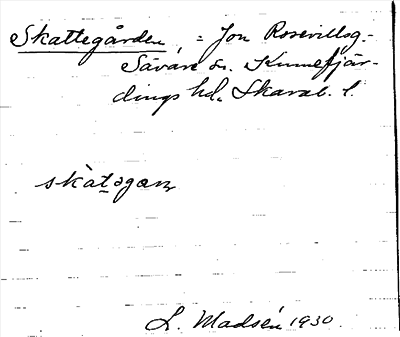 Skattegården, = Jon Rosevillsg.-
Sävare sn. Kinnefjär-
dings hd. Skarab. l.
skàtəgɑɳ
L. Madsén 1930.